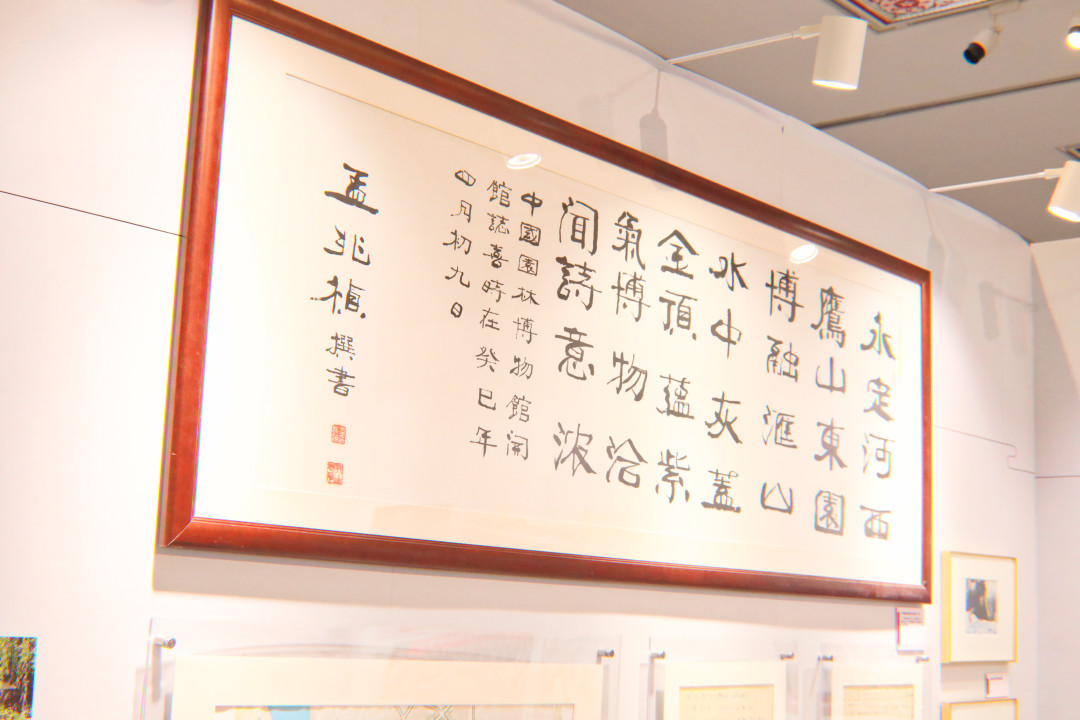 永定河西
鷹山東園
博融滙山
水中灰蓋
金頂蘊紫
氣博物洽
闻詩意浓
中國園林博物館開
館誌喜時在癸巳年
四月初九日
孟兆楨撰書